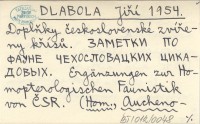 DLABOLA Jiří 1954.
Doplňky československé zvíře-
ny křísů. ЗАМЕТКИ ПО
ФАУНЕ ЧЕХОСЛОВАЦКИХ ЦИКА-
ДОВЫХ. Ergänzungen zur Ho-
mopterologischen Faunistik
von ČSR. (Hom., Aucheno-